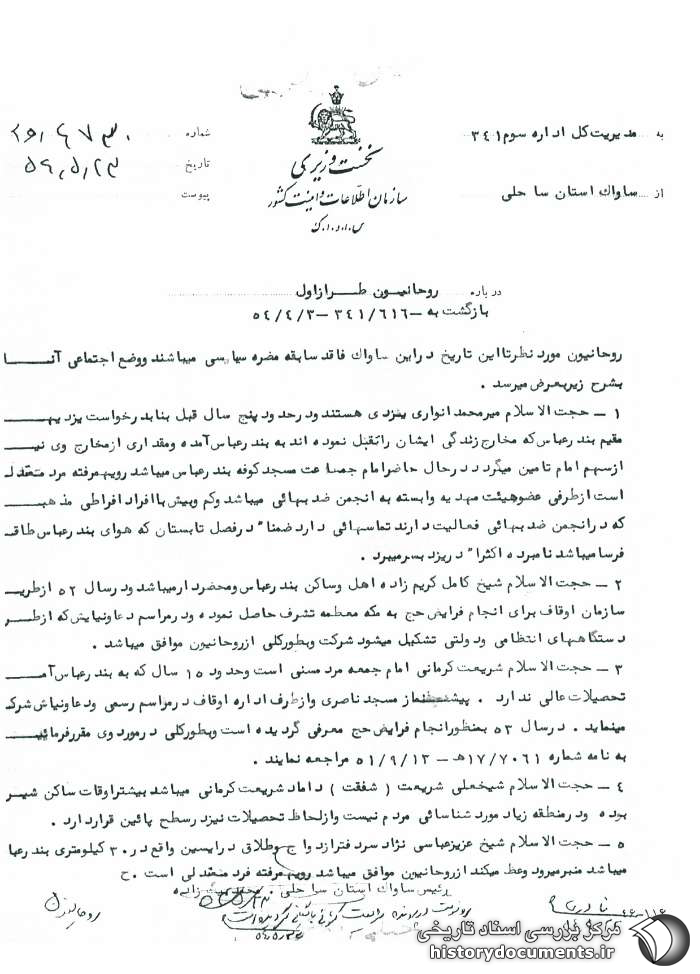 به مدیریت کل اداره سوم ۳۴۱
از ساواک استان ساحلی
نخست وزیری
سازمان اطلاعات و امنیت کشور
س.ا.و.ا.ک
شماره
تاریخ
پیوست
درباره روحانیون طراز اول
بازگشت به – ۳۴۱/۶۱۶ – ۵۴/۴/۳
روحانیون مورد نظر تا این تاریخ در این ساواک فاقد سابقه مضره سیاسی میباشند و وضع اجتماعی آنها
بشرح زیر بعرض میرسد .
۱ – حجت الاسلام میر محمد انواری یزدی هستند و در حدود پنج سال قبل بنا بدرخواست یزدیهای
مقیم بندرعباس که مخارج زندگی ایشان را تقبل نموده اند به بندرعباس آمده و مقداری از مخارج وی نیز
از سهم امام تامین میگردد در حال حاضر امام جماعت مسجد کوفه بندرعباس میباشد رویهمرفته مرد متعدل
است از طرفی عضو هیئت مهدیه وابسته به انجمن ضد بهائی میباشد و کم و بیش با افراد افراطی مذهبی
که در انجمن ضد بهائی فعالیت دارند تماسهائی دارد ضمنا" در فصل تابستان که هوای بندرعباس طاقت
فرسا میباشد نامبرده اکثرا" در یزد بسر میبرد .
۲ – حجت الاسلام شیخ کامل کریم زاده اهل و ساکن بندرعباس و محضردار میباشد و در سال ۵۲ از طریق
سازمان اوقاف برای انجام فرایض حج به مکه معظمه تشرف حاصل نموده و در مراسم دعا و نیایش که از طرف
دستگاههای انتظامی و دولتی تشکیل میشود شرکت و بطور کلی از روحانیون موافق میباشد .
۳ – حجت الاسلام شریعت کرمانی امام جمعه مرد مسنی است و حدود ۱۵ سال که به بندرعباس آمده
تحصیلات عالی ندارد . پیشنماز مسجد ناصری و از طرف اداره اوقاف در مراسم رسمی و دعا و نیایش شرکت
مینماید . در سال ۵۳ بمنظور انجام فرایض حج معرفی گردیده است و بطور کلی در مورد وی مقرر فرمائید
به نامه شماره ۱۷/۷۰۶۱ هـ – ۵۱/۹/۱۳ مراجعه نمایند .
۴ – حجت الاسلام شیخعلی شریعت ( شفقت ) داماد شریعت کرمانی میباشد بیشتر اوقات ساکن شیراز
بوده و در منطقه زیاد مورد شناسائی مردم نیست و از لحاظ تحصیلات نیز در سطح پائین قرار دارد .
۵ – حجت الاسلام شیخ عزیز عباسی نژاد سردفتر ازدواج و طلاق در ایسین واقع در ۳۰ کیلومتری بندرعباس
میباشد منبر میرود و وعظ میکند از روحانیون موافق میباشد رویهمرفته فرد متعدلی است . ح
رئیس ساواک استان ساحلی .
مرکز بررسی اسناد تاریخی
historydocuments.ir